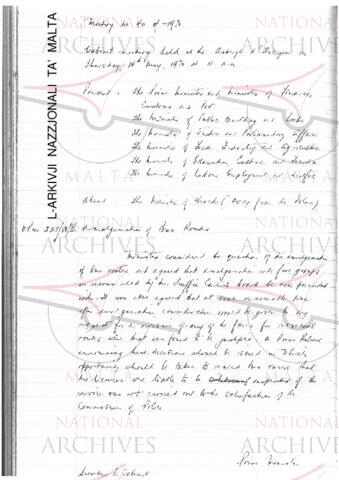 L-ARKIVJI NAZZJONALI TA' MALTA
NATIONAL
ARCHIVES
MALTA
Meeting no 40 of -1970
Cabinet meeting held at the Auberge d'Aragon on
Thursday, 14th May, 1970 at 11 a.m.
Present : The Prime Minister and Minister of Finance,
Customs and Port
The Minister of Public Building and Works
The Minister of Trade and Parliamentary Affairs
The Minister of Industry and Agriculture
The Minister of Education, Culture and Tourism
The Minister of Labour Employment and Welfare
Absent : The Minister of Health (away from the Island)
Amalgamation of Bus Routes
Ministers considered the question of the amalgamation
of bus routes and agreed that amalgamation into five groups
as recommended by the Traffic Control Board be now proceeded
with. It was also agreed that at some reasonable time
after amalgamation consideration would be given to any
request for a revision of any of the fares for individual
routes when that was found to be justified. A Press Release
announcing these decisions should be issued in which
opportunity should be taken to remind bus owners that
bus licences are liable to be suspended if the
service was not carried out to the satisfaction of the
Commissioner of Police.
Prime Minister
Secretary to Cabinet